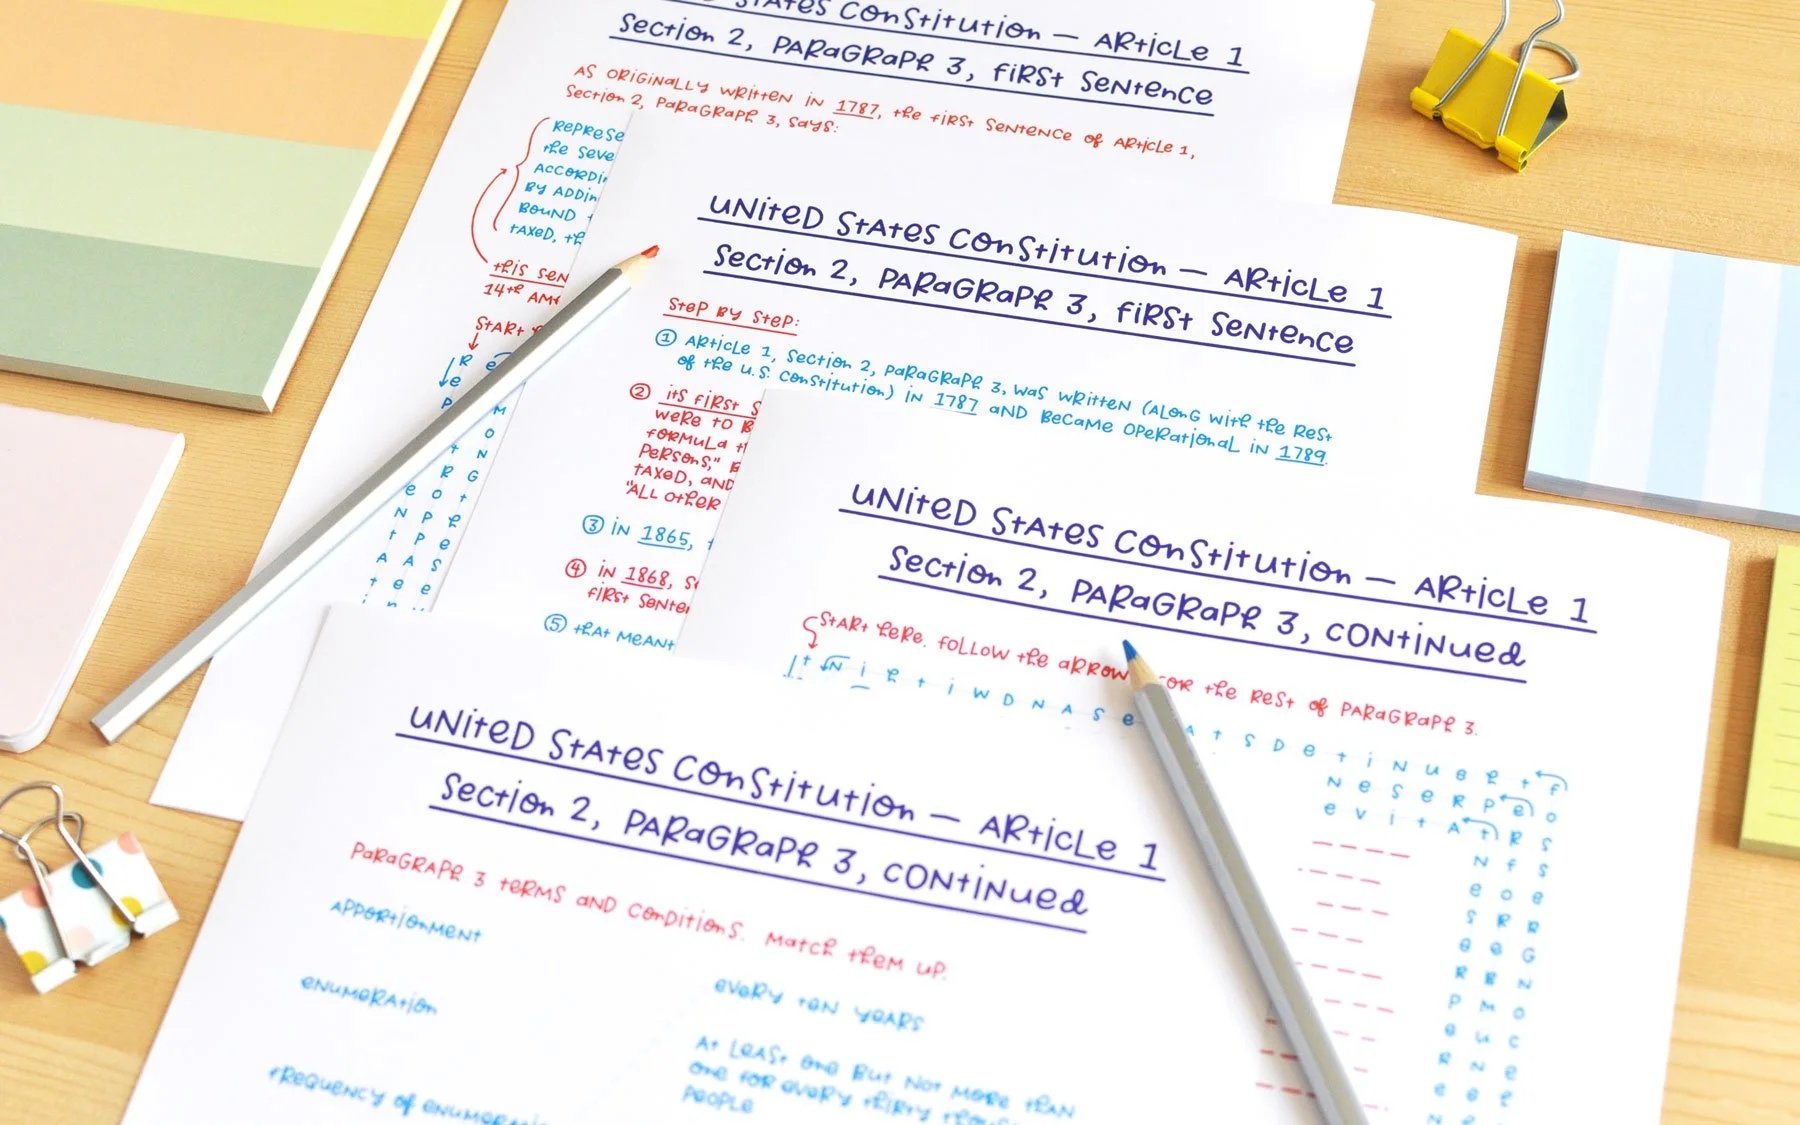 States Constitution — Article 1
Section 2, Paragraph 3, First Sentence
As originally written in 1787, the first sentence of Article 1,
Section 2, Paragraph 3, says:
Represe
the seve
accordi
by addin
bound
taxed, th
this sen
14th Am
Start
United States Constitution — Article 1
Section 2, Paragraph 3, First Sentence
Step by step:
① Article 1, Section 2, Paragraph 3, was written (along with the rest
of the U.S. Constitution) in 1787 and became operational in 1789.
② its first s
were to b
formula th
persons," b
taxed, and
"all other
③ in 1865,
④ in 1868, s
first senten
⑤ that meant
United States Constitution — Article 1
Section 2, Paragraph 3, continued
Start here. Follow the arrow for the rest of Paragraph 3.
t N i h t i w D N A S e
A t S D e t i N U e h t f
N e S e R P e o
e v i t A t R S
N f S
e o e
S R R
e e G
R B N
P M o
e u C
R N e
United States Constitution — Article 1
Section 2, Paragraph 3, continued
Paragraph 3 terms and conditions. Match them up.
apportionment
enumeration
frequency of enumeratio
every ten years
at least one but not more than
one for every thirty thous
people